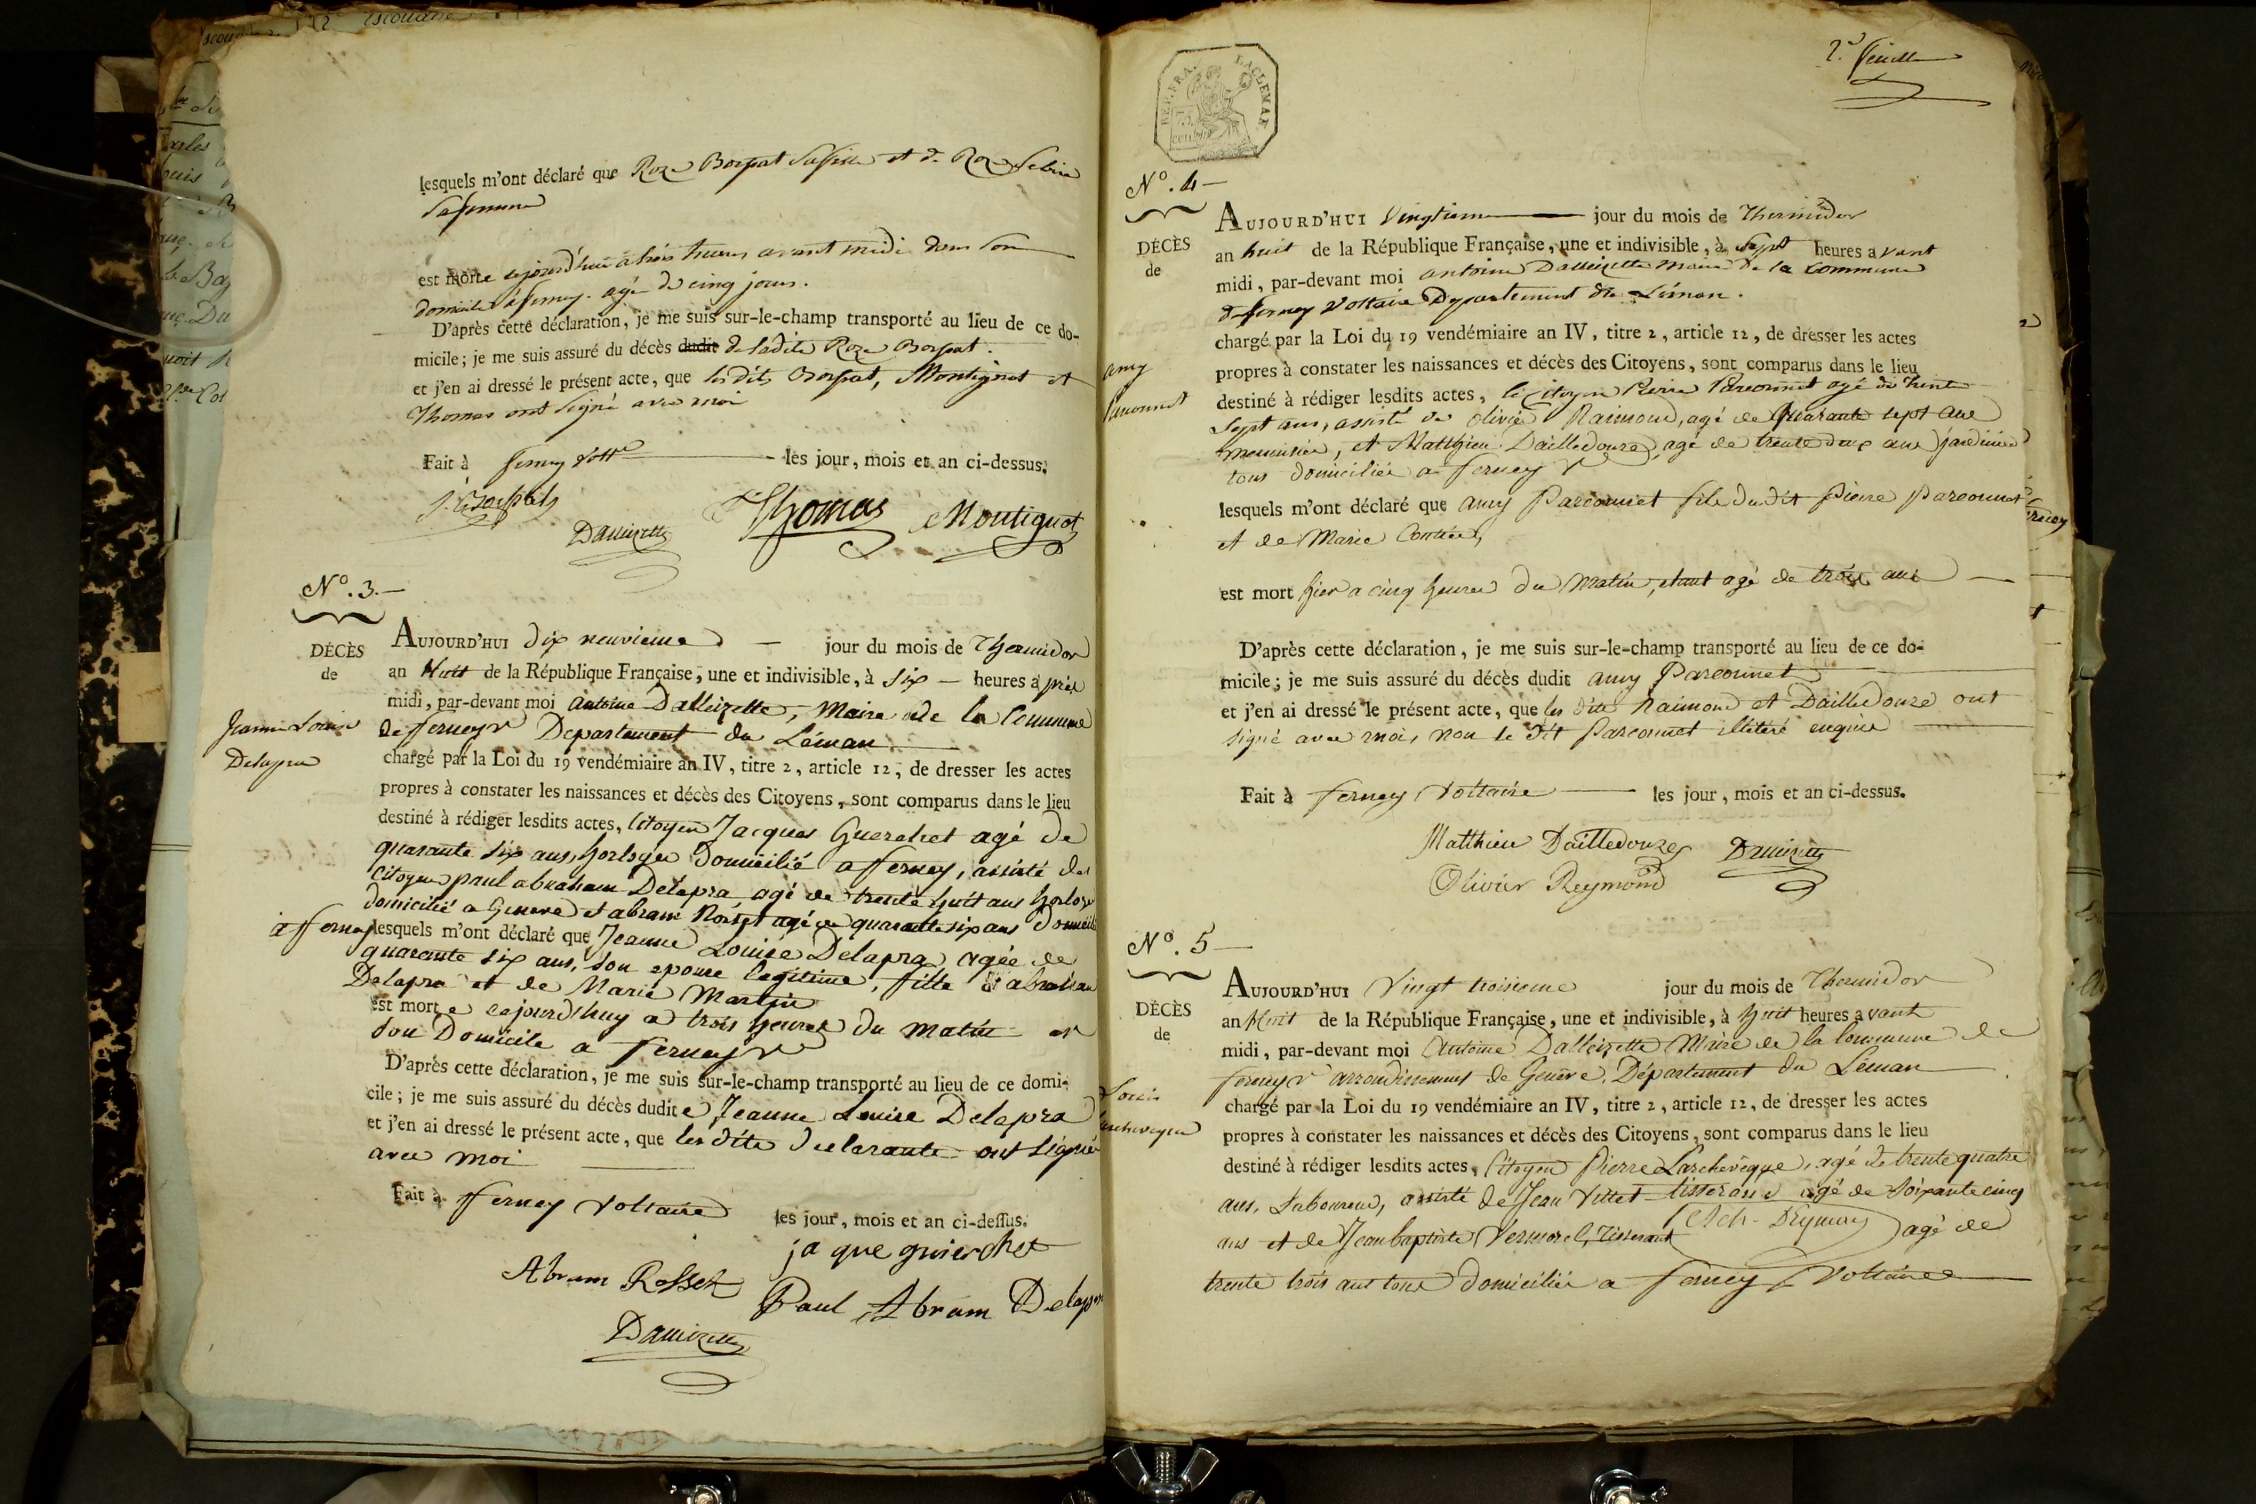 lesquels m'ont déclaré que Roze Borpat sa fille et de Roze
sa femme
est morte aujourd'hui à trois heures avant midi dans son
domicile à ferney. agée de cinq jours.
D'après cette déclaration, je me suis sur-le-champ transporté au lieu de ce do-
micile; je me suis assuré du décès dudit de ladite Roze Borpat.
et j'en ai dressé le présent acte, que lesdits Borpat, Montignot et
Thomas ont signé avec moi
Fait à ferney Voltre les jour, mois et an ci-dessus.
Thomas Montignot
Dalleizette
N°. 3.
DÉCÈS
de
Jeanne Louise
Delapra
AUJOURD'HUI dix neuvieme jour du mois de Thermidor
an Huit de la République Française, une et indivisible, à six heures après
midi, par-devant moi Antoine Dalleizette, Maire de la Commune
de ferney V Departement du Léman
chargé par la Loi du 19 vendémiaire an IV, titre 2, article 12, de dresser les actes
propres à constater les naissances et décès des Citoyens, sont comparus dans le lieu
destiné à rédiger lesdits actes, Citoyen Jacques Guerchet agé de
quarante six ans, horloger domicilié a ferney, assisté de
Citoyen paul abraham Delapra agé de trente huit ans horloger
domicilié a Geneve et abram Rosset agé de quarante six ans Domicilié
a ferney lesquels m'ont déclaré que Jeanne Louise Delapra agée de
quarante six ans, son epouse legitime, fille d'abraham
Delapra et de Marie Martin
est morte cejourdhuy a trois heures du matin en
son Domicile a ferney V
D'après cette déclaration, je me suis sur-le-champ transporté au lieu de ce domi-
cile; je me suis assuré du décès dudite Jeanne Louise Delapra
et j'en ai dressé le présent acte, que les dits declarants ont signé
avec moi
Fait à ferney Voltaire les jour, mois et an ci-dessus.
ja que guierchet
Abram Rosset
Paul Abram Delapra
Dalleizette
2e. feuille
REP. FRA.
LAC LEMAN
75
cent
N°. 4
DÉCÈS
de
amy
Parconnet
AUJOURD'HUI Vingtieme jour du mois de Thermidor
an huit de la République Française, une et indivisible, à Sept heures avant
midi, par-devant moi antoine Dalleizette maire de la Commune
de ferney Voltaire Departement du Léman.
chargé par la Loi du 19 vendémiaire an IV, titre 2, article 12, de dresser les actes
propres à constater les naissances et décès des Citoyens, sont comparus dans le lieu
destiné à rédiger lesdits actes, le Citoyen Pierre Parconnet agé de trente
Sept ans, assisté de Olivier Raimond, agé de Quarante sept ans
menuisier, et Matthieu Dailledouze, agé de trente deux ans jardinier
tous domiciliés a ferney V
lesquels m'ont déclaré que amy Parconnet fils du dit Pierre Parconnet
et de Marie
est mort hier a cinq heures du matin, etant agé de trois ans
D'après cette déclaration, je me suis sur-le-champ transporté au lieu de ce do-
micile; je me suis assuré du décès dudit amy Parconnet
et j'en ai dressé le présent acte, que les dits Raimond et Dailledouze ont
signé avec moi, non le dit Parconnet illitéré enquis
Fait à ferney Voltaire les jour, mois et an ci-dessus.
Matthieu Dailledouze Dalleizette
Olivier Reymond
N°. 5
DÉCÈS
de
Louis
Larcheveque
AUJOURD'HUI Vingt troisieme jour du mois de Thermidor
an Huit de la République Française, une et indivisible, à huit heures avant
midi, par-devant moi Antoine Dalleizette Maire de la Commune de
ferney V arrondissement de Genève, Département du Léman
chargé par la Loi du 19 vendémiaire an IV, titre 2, article 12, de dresser les actes
propres à constater les naissances et décès des Citoyens, sont comparus dans le lieu
destiné à rédiger lesdits actes, Citoyen Pierre Larchevêque, agé de trente quatre
ans, Laboureur, assisté de Jean Villet tisserand agé de soixante cinq
ans et de Jean baptiste Vermorel, Tisserant agé de
trente trois ans tous domiciliés a ferney Voltaire